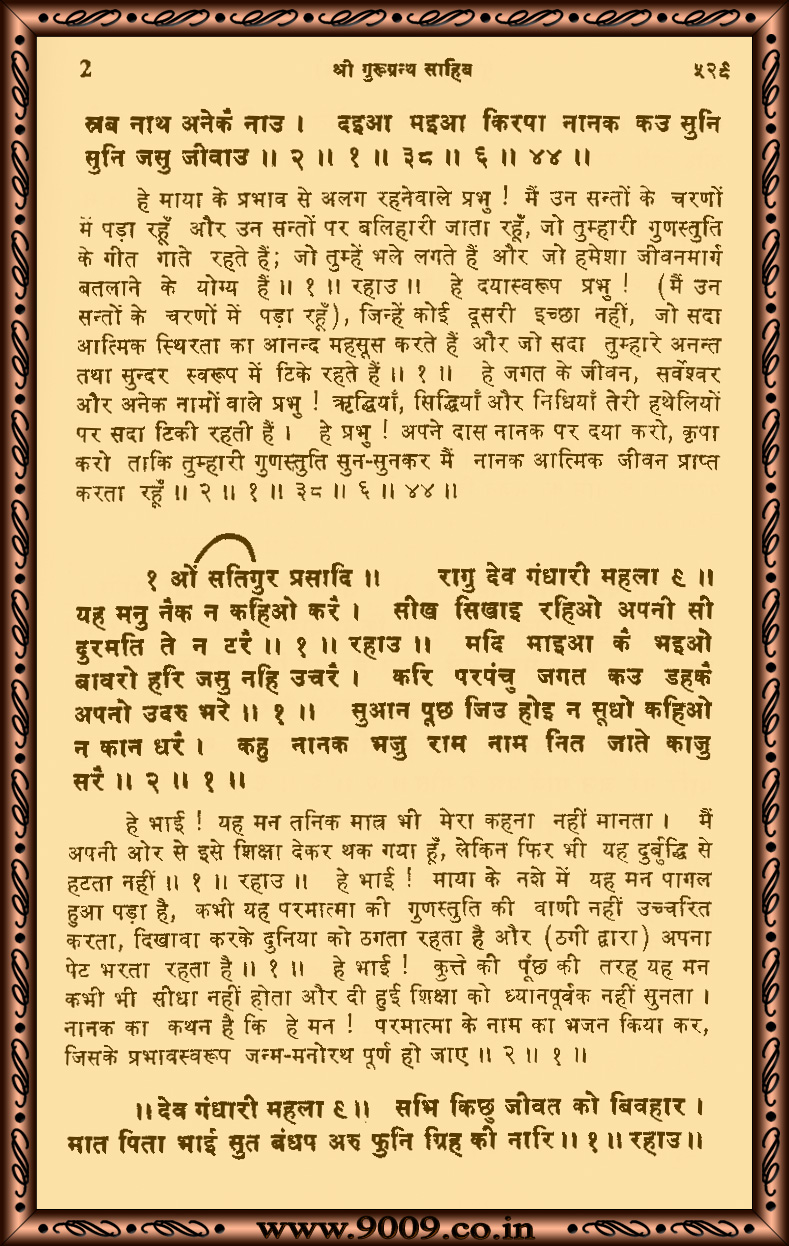 2 श्री गुरूग्रन्थ साहिब ५२६
स्रब नाथ अनेकै नाउ । दइआ मइआ किरपा नानक कउ सुनि
सुनि जसु जीवाउ ॥ २ ॥ १ ॥ ३८ ॥ ६ ॥ ४४ ॥
हे माया के प्रभाव से अलग रहनेवाले प्रभु ! मैं उन सन्तों के चरणों
में पड़ा रहूँ और उन सन्तों पर बलिहारी जाता रहूँ, जो तुम्हारी गुणस्तुति
के गीत गाते रहते हैं; जो तुम्हें भले लगते हैं और जो हमेशा जीवनमार्ग
बतलाने के योग्य हैं ॥ १ ॥ रहाउ ॥ हे दयास्वरूप प्रभु ! (मैं उन
सन्तों के चरणों में पड़ा रहूँ), जिन्हें कोई दूसरी इच्छा नहीं, जो सदा
आत्मिक स्थिरता का आनन्द महसूस करते हैं और जो सदा तुम्हारे अनन्त
तथा सुन्दर स्वरूप में टिके रहते हैं ॥ १ ॥ हे जगत के जीवन, सर्वेश्वर
और अनेक नामों वाले प्रभु ! ऋद्धियाँ, सिद्धियाँ और निधियाँ तेरी हथेलियों
पर सदा टिकी रहती हैं । हे प्रभु ! अपने दास नानक पर दया करो, कृपा
करो ताकि तुम्हारी गुणस्तुति सुन-सुनकर मैं नानक आत्मिक जीवन प्राप्त
करता रहूँ ॥ २ ॥ १ ॥ ३८ ॥ ६ ॥ ४४ ॥
१ ओं सतिगुर प्रसादि ॥ रागु देव गंधारी महला ९ ॥
यह मनु नैक न कहिओ करै । सीख सिखाइ रहिओ अपनी सी
दुरमति ते न टरै ॥ १ ॥ रहाउ ॥ मदि माइआ कै भइओ
बावरो हरि जसु नहि उचरै । करि परपंचु जगत कउ डहकै
अपनो उदरु भरे ॥ १ ॥ सुआन पूछ जिउ होइ न सूधो कहिओ
न कान धरै । कहु नानक भजु राम नाम नित जाते काजु
सरै ॥ २ ॥ १ ॥
हे भाई ! यह मन तनिक मात्र भी मेरा कहना नहीं मानता । मैं
अपनी ओर से इसे शिक्षा देकर थक गया हूँ, लेकिन फिर भी यह दुर्बुद्धि से
हटता नहीं ॥ १ ॥ रहाउ ॥ हे भाई ! माया के नशे में यह मन पागल
हुआ पड़ा है, कभी यह परमात्मा की गुणस्तुति की वाणी नहीं उच्चरित
करता, दिखावा करके दुनिया को ठगता रहता है और (ठगी द्वारा) अपना
पेट भरता रहता है ॥ १ ॥ हे भाई ! कुत्ते की पूँछ की तरह यह मन
कभी भी सीधा नहीं होता और दी हुई शिक्षा को ध्यानपूर्वक नहीं सुनता ।
नानक का कथन है कि हे मन ! परमात्मा के नाम का भजन किया कर,
जिसके प्रभावस्वरूप जन्म-मनोरथ पूर्ण हो जाए ॥ २ ॥ १ ॥
॥ देव गंधारी महला ९ ॥ सभि किछु जीवत को बिवहार ।
मात पिता भाई सुत बंधप अरु फुनि ग्रिह की नारि ॥ १ ॥ रहाउ ॥
www.9009.co.in